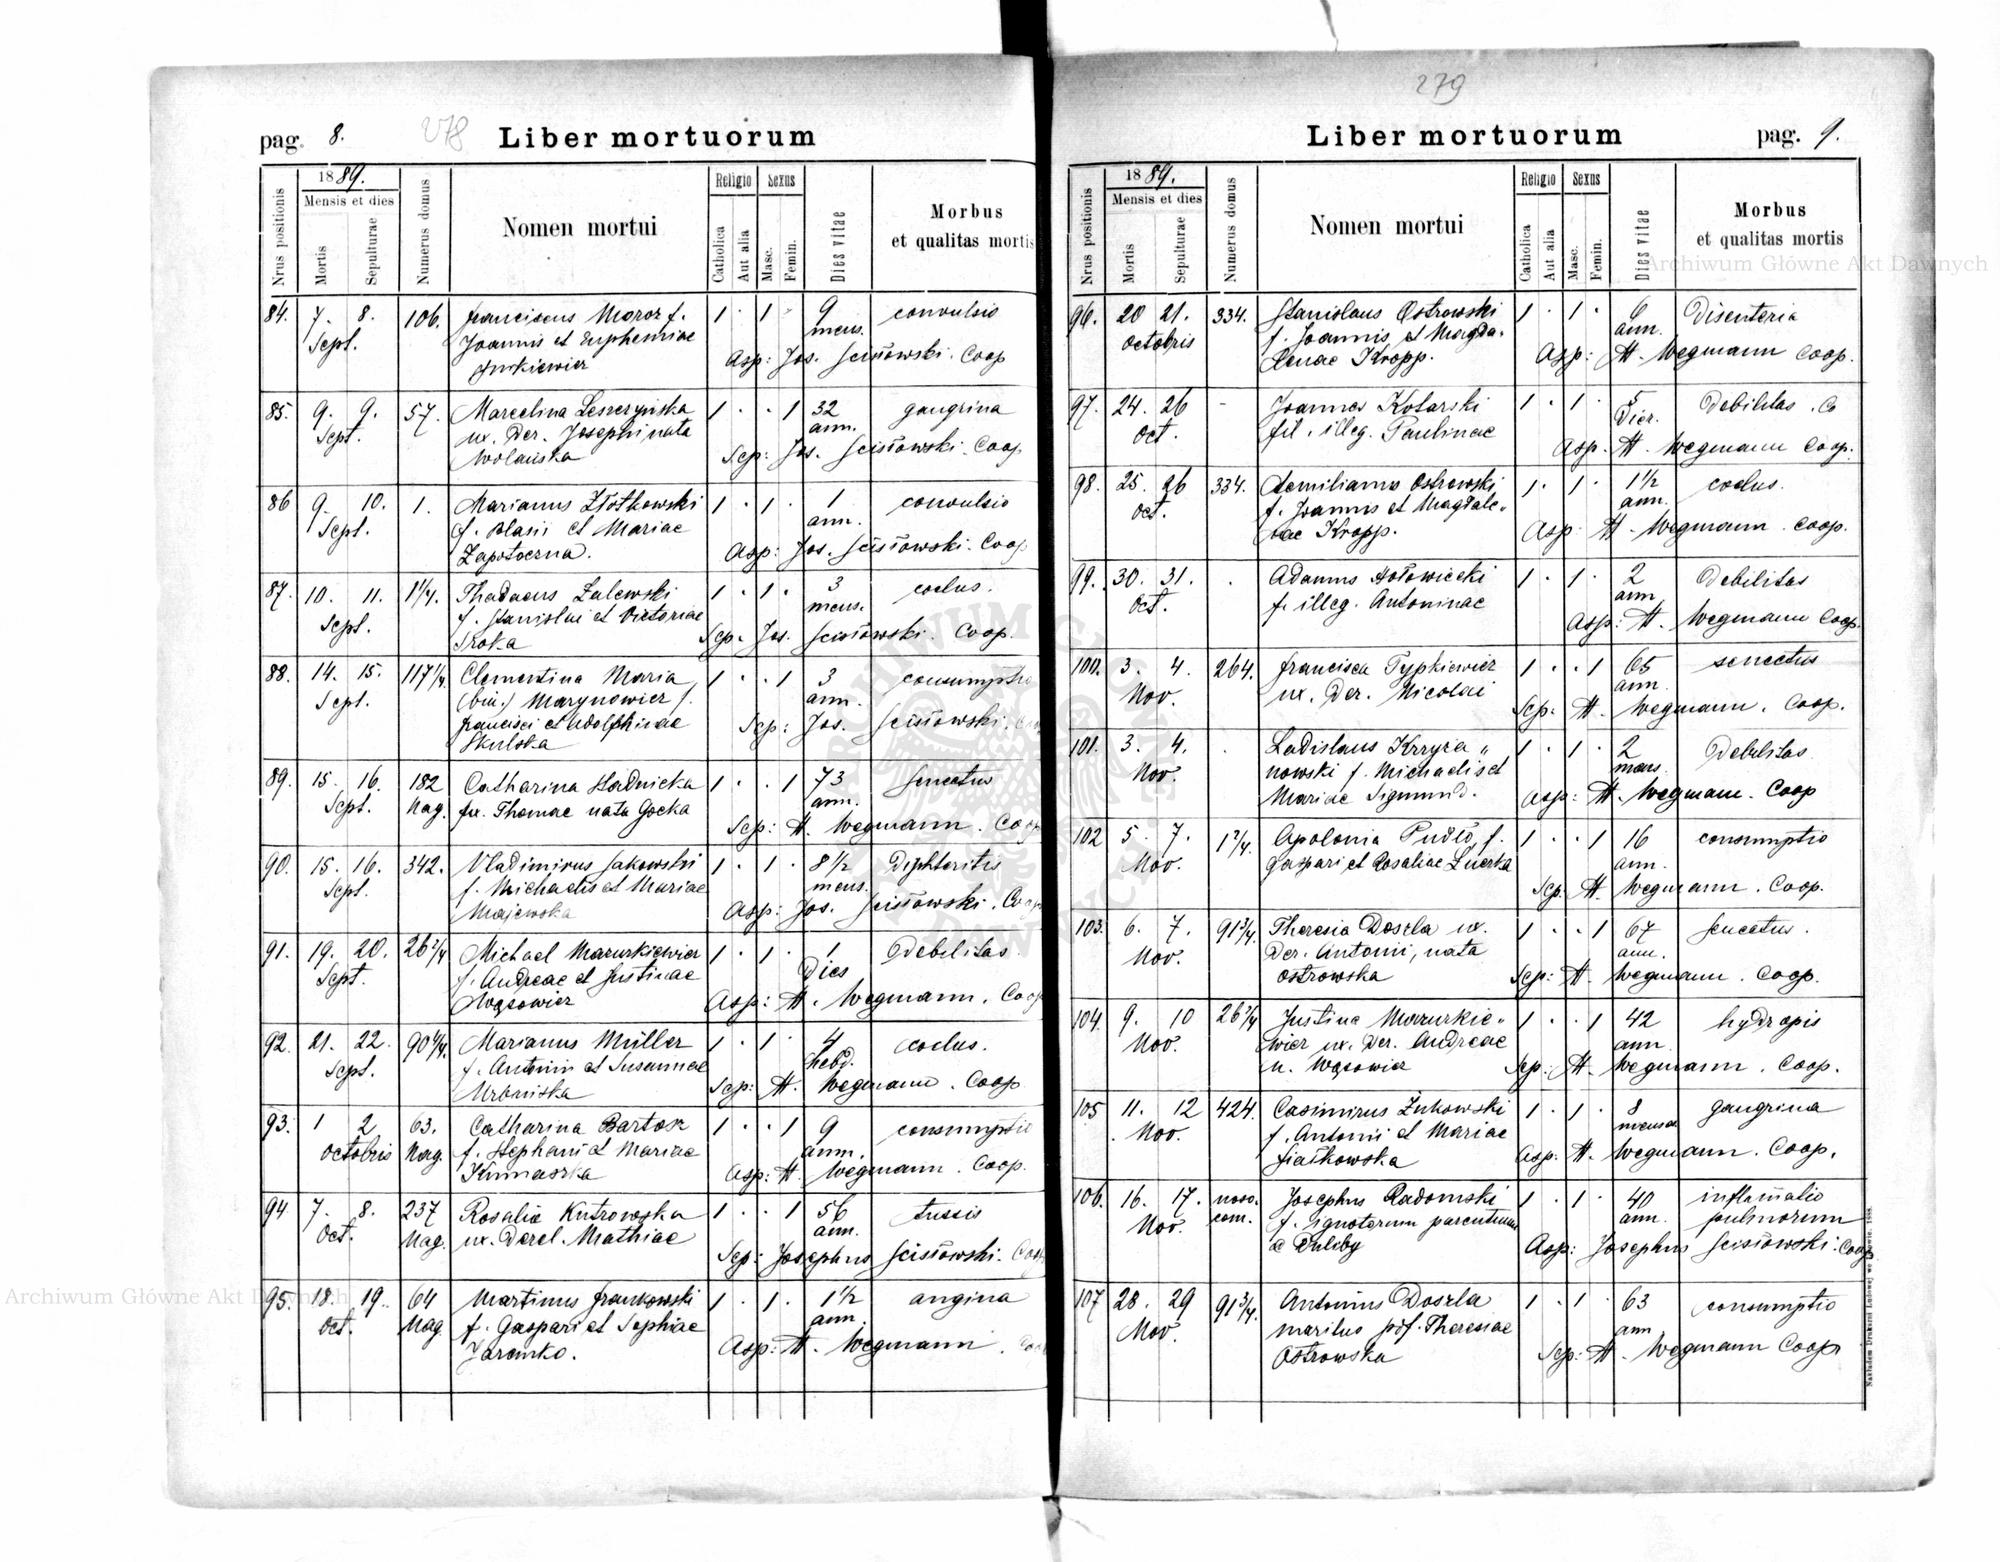 279
pag. 8.
278
Liber mortuorum
Nrus positionis
1889.
Mensis et dies
Mortis
Sepulturae
Numerus domus
Nomen mortui
Religio
Catholica
Aut alia
Sexus
Masc.
Femin.
Dies vitae
Morbus
et qualitas mortis
84. 7. 8. 106. Franciscus Moroz f. 1 · 1 · 9 convulsio
Sept. Joannis et Euphemiae mens.
Asp: Jos. Scisłowski. Coop
Jurkiewicz
85. 9. 9. 57. Marcelina Leszczyńska 1 · · 1 32 gangrina
Sept. ux. Der. Josephi nata ann.
Wolańska Sep: Jos. Scisłowski. Coop
86 9. 10. 1. Marianus Złotkowski 1 · 1 · 1 convulsio
Sept. f. Blasii et Mariae ann.
Zapotoczna. Asp: Jos. Scisłowski. Coop
87. 10. 11. 11/4. Thadaeus Zalewski 1 · 1 · 3 coelus.
Sept. f. Stanislai et Victoriae mens.
Sroka Sep. Jos. Scisłowski. Coop.
88. 14. 15. 117 1/4. Clementina Maria 1 · · 1 3 consumptio
Sept. (bin.) Marynowicz f. ann.
Francisci et Adolphinae Sep: Jos. Scisłowski.
Skulska
89. 15. 16. 182 Catharina Hadnicka 1 · · 1 73 senectus
Sept. Nag. ux. Thomae nata Gocka ann.
Sep: H. Wegmann. Coop
90. 15. 16. 342. Vladimirus Sakowski 1 · 1 · 8 1/2 Diphteritis
Sept. f. Michaelis et Mariae mens.
Majewska Asp: Jos. Scisłowski. Coop
91. 19. 20. 26 2/4 Michael Mazurkiewicz 1 · 1 · 1 Debelitas
Sept. f. Andreae et Justinae Dies
Wąsowicz Asp: H. Wegmann. Coop
92. 21. 22. 90 4/4. Marianus Müller 1 · 1 · 4 coelus.
Sept. f. Antonii et Susannae hebd.
Urbańska Sep: H. Wegmann. Coop
93. 1 2 63. Catharina Bartosz 1 · · 1 9 consumptio
Octobris Nag f. Stephani et Mariae ann.
Kumaszka Asp: H. Wegmann. Coop.
94 7. 8. 237 Rosalia Kutrowska 1 · · 1 56 tussis
Oct. Nag. ux. Derel. Mathiae ann.
Sep: Josephus Scisłowski. Coop
95. 18. 19. 64 Martinus Frankowski 1 · 1 · 1 1/2 angina
Oct. Nag f. Gaspari et Sophiae ann.
Jaremko. Asp: H. Wegmann. Coop
Liber mortuorum
pag. 9.
Nrus positionis
1889.
Mensis et dies
Mortis
Sepulturae
Numerus domus
Nomen mortui
Religio
Catholica
Aut alia
Sexus
Masc.
Femin.
Dies vitae
Morbus
et qualitas mortis
96. 20 21. 334. Stanislaus Ostrowski 1 · 1 · 6 Disenteria
Octobris f. Joannis et Magda- ann.
lenae Kropp. Asp: H. Wegmann Coop.
97. 24. 26 - Joannes Kotarski 1 · 1 · 5 Debilitas. Co
Oct. fil. illeg. Paulinae Dier.
Asp. H. Wegmann Coop.
98. 25. 26 334. Aemilianus Ostrowski 1 · 1 · 1 1/2 coelus.
Oct. f. Joannis et Magdale- ann.
nae Kropp. Asp H. Wegmann. Coop.
99. 30. 31. · Adamus Hołowiecki 1 · 1 · 2 Debilitas
Oct. f. illeg. Antoninae ann
Asp: H. Wegmann Coop.
100. 3. 4. 264. Francisca Typkiewicz 1 · · 1 65 senectus
Nov. ux. Der. Nicolai ann.
Sep: H. Wegmann. Coop.
101. 3. 4. · Ladislaus Krzyża„ 1 · 1 · 2 Debilitas
Nov. nowski f. Michaelis et mens.
Mariae Sigmund. Asp: H. Wegmann. Coop
102 5. 7. 1 2/4. Apolonia Pudło f. 1 · · 1 16 consumptio
Nov. Gaspari et Rosaliae Luerka ann.
Sep: H. Wegmann. Coop.
103. 6. 7. 91 3/4. Theresia Doszla ux. 1 · · 1 67 senectus.
Nov. Der. Antonii, nata ann.
Ostrowska Sep: H. Wegmann. Coop.
104. 9. 10 26 2/4 Justina Mazurkie„ 1 · · 1 42 hydropis
Nov. wicz ux. Der. Andreae ann.
n. Wąsowicz Sep: H. Wegmann. Coop.
105 11. 12 424. Casimirus Żukowski 1 · 1 · 8 gangrina
Nov. f. Antonii et Mariae menses
Fiałkowska Asp: H. Wegmann. Coop.
106. 16. 17. noso. Josephus Radomski 1 · 1 · 40 inflamatio
Nov. com. f. ignotorum parentum ann. pulmorum
e Duliby Asp: Josephus Scisłowski. Coop
107 28. 29 91 3/4. Antonius Doszla 1 · 1 · 63 consumptio
Nov. maritus pdf. Theresiae ann
Ostrowska Sep: H. Wegmann Coop
Archiwum Główne Akt Dawnych
Archiwum Główne Akt Dawnych